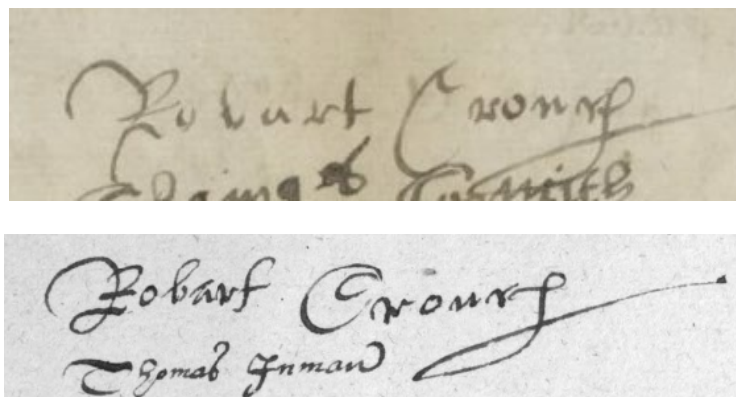 Robart Crouch
Thomas
Robart Crouch
Thomas Inman